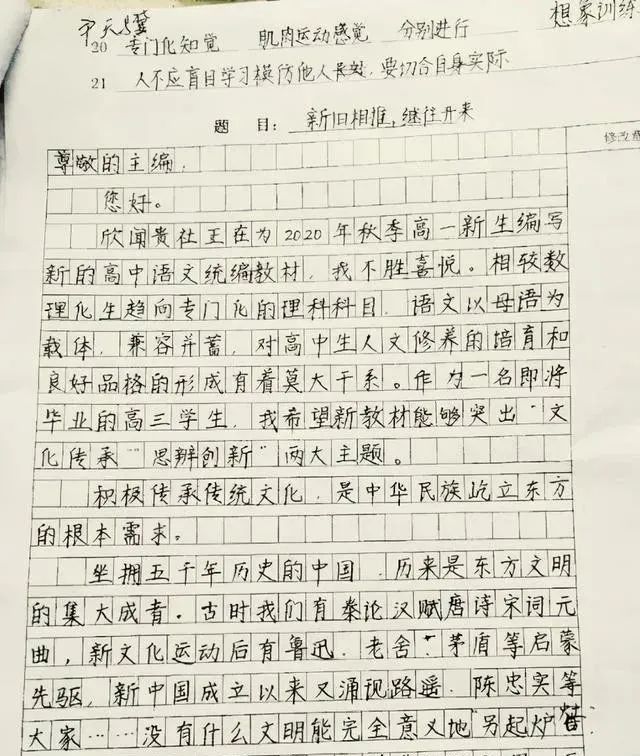 想象训练
20 专门化知觉 肌肉运动感觉 分别进行
21 人不应盲目学习模仿他人长处,要切合自身实际
题 目: 新旧相推,继往开来
修改
尊敬的主编,
您好。
欣闻贵社正在为2020年秋季高一新生编写
新的高中语文统编教材,我不胜喜悦。相较数
理化生趋向专门化的理科科目,语文以母语为
载体,兼容并蓄,对高中生人文修养的培育和
良好品格的形成有着莫大干系。作为一名即将
毕业的高三学生,我希望新教材能够突出“文
化传承”“思辨创新”两大主题。
积极传承传统文化,是中华民族屹立东方
的根本需求。
坐拥五千年历史的中国,历来是东方文明
的集大成者。古时我们有秦论汉赋唐诗宋词元
曲,新文化运动后有鲁迅、老舍、茅盾等启蒙
先驱,新中国成立以来又涌现路遥、陈忠实等
大家……没有什么文明能完全意义地“另起炉灶”